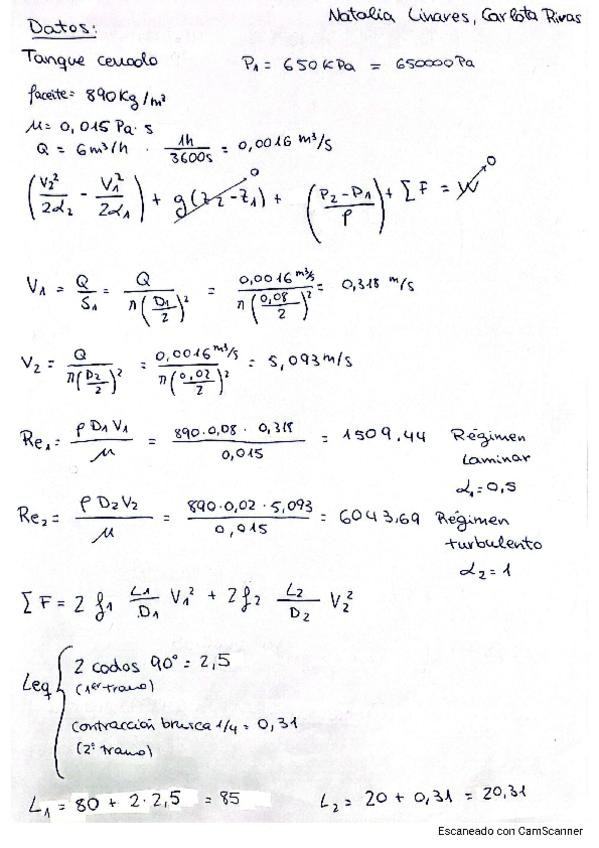 Natalia Linares, Carlota Rivas
Datos:
Tanque cerrado P₁ = 650KPa = 650000Pa
ρaceite = 890Kg/m³
μ = 0,015 Pa·s
Q = 6m³/h · 1h/3600s = 0,0016 m³/s
(V₂²/2α₂ - V₁²/2α₁) + g(z₂-z₁) + (P₂-P₁/ρ) + ΣF = W
0
0
V₁ = Q/S₁ = Q/π(D₁/2)² = 0,0016 m³/s/π(0,08/2)² = 0,318 m/s
V₂ = Q/π(D₂/2)² = 0,0016 m³/s/π(0,02/2)² = 5,093 m/s
Re₁ = ρ D₁ V₁/μ = 890·0,08·0,318/0,015 = 1509,44 Régimen
Laminar
α₁=0,5
Re₂ = ρ D₂ V₂/μ = 890·0,02·5,093/0,015 = 6043,69 Régimen
turbulento
α₂=1
ΣF = 2 f₁ L₁/D₁ V₁² + 2f₂ L₂/D₂ V₂²
Leq { 2 codos 90° = 2,5
(1er tramo)
contracción brusca 1/4 = 0,31
(2º tramo)
L₁ = 80 + 2·2,5 = 85 L₂ = 20 + 0,31 = 20,31
Escaneado con CamScanner